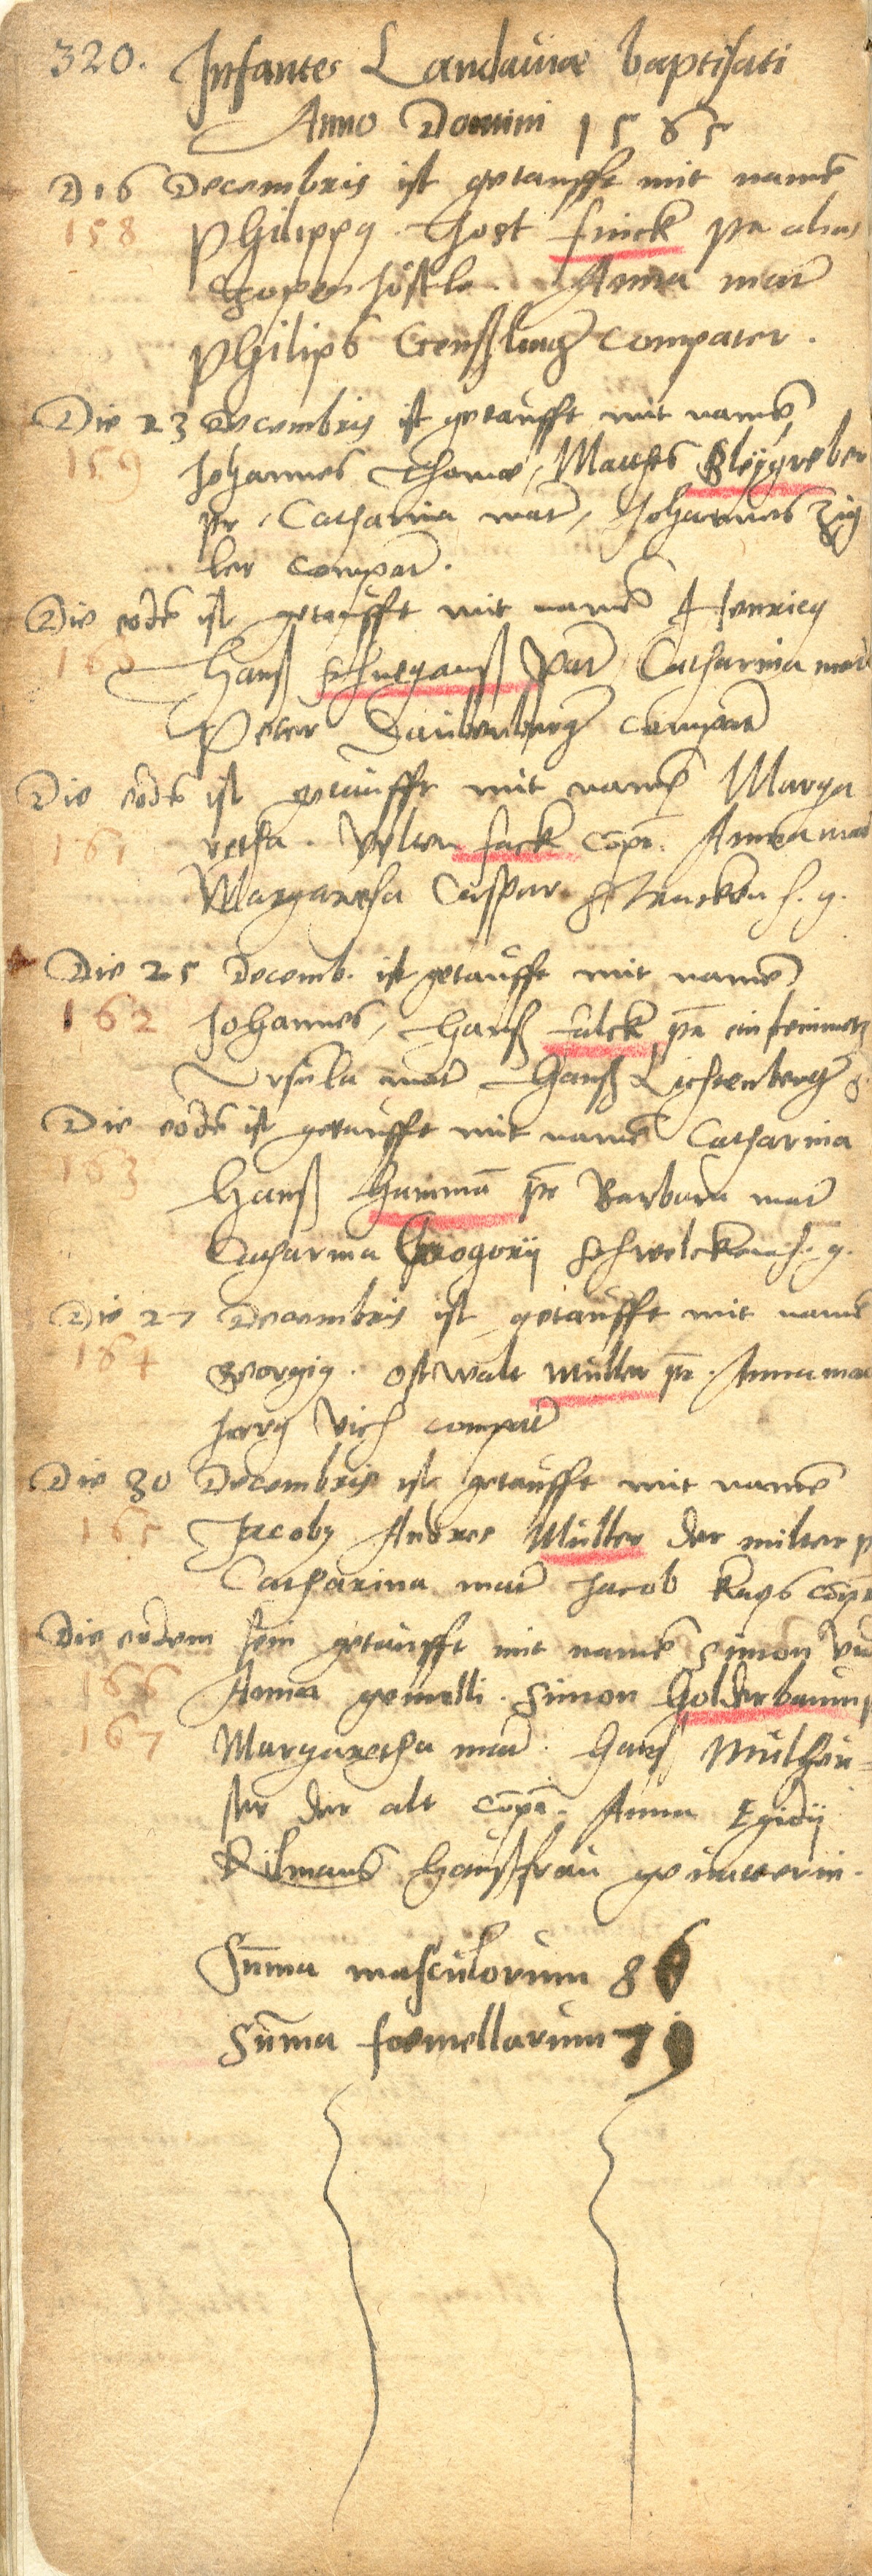 320. Infantes Landaviae baptisati
Anno Domini 1565
D 16 Decembris ist getaufft mit namē
158 Philippg Jost finck pr alias
Anna mat̃
Philips compater.
Die 23 Decembris ist getaufft mit namē
159 Johannes Thomæ, Matthes Bleÿgreber
pr, Catharina mat̃, Johannes Zig
ler compat̃.
Die eodē ist getaufft mit namē Henricg
160 Hanß Pat̃ Catharina mat̃
Peter Daubenberg̃ compat̃
Die eodē ist getaufft mit namē Marga
161 retha. Velten fack cōpr. Anna mat̃
Margaretha Caspar h. g.
Die 25 Decemb. ist getaufft mit namē
162 Johannes, Hanß falck pr̄ ein steinmetz
Ursula mat̃ Hanß Lichtenberg̃
Die eodē ist getaufft mit namē Catharina
163 Hanß Hammā pr̄ Barbara mat̃
Catharina Gregorij Schwelcken h. g.
Die 27 Decembris ist getaufft mit namē
164 Georgig. Ostwalt Müller pr̄. Anna mat
Jerg Vich compat̃
Die 30 Decembris ist getaufft mit namē
165 Jacobg Andres Müller der milter p
Catharina mat̃ Jacob Kaps cōpr
Die eodem sein getaufft mit namē Simon vnd
166 Anna gemelli. Simon Holderbaum p
167 Margaretha mat̃. Hans Mülheu=
ser der alt cōpr. Anna Egidij
Dilmans Haußfrau geuatterin.
Sūma masculorum 86
Sūma foemellarum 79